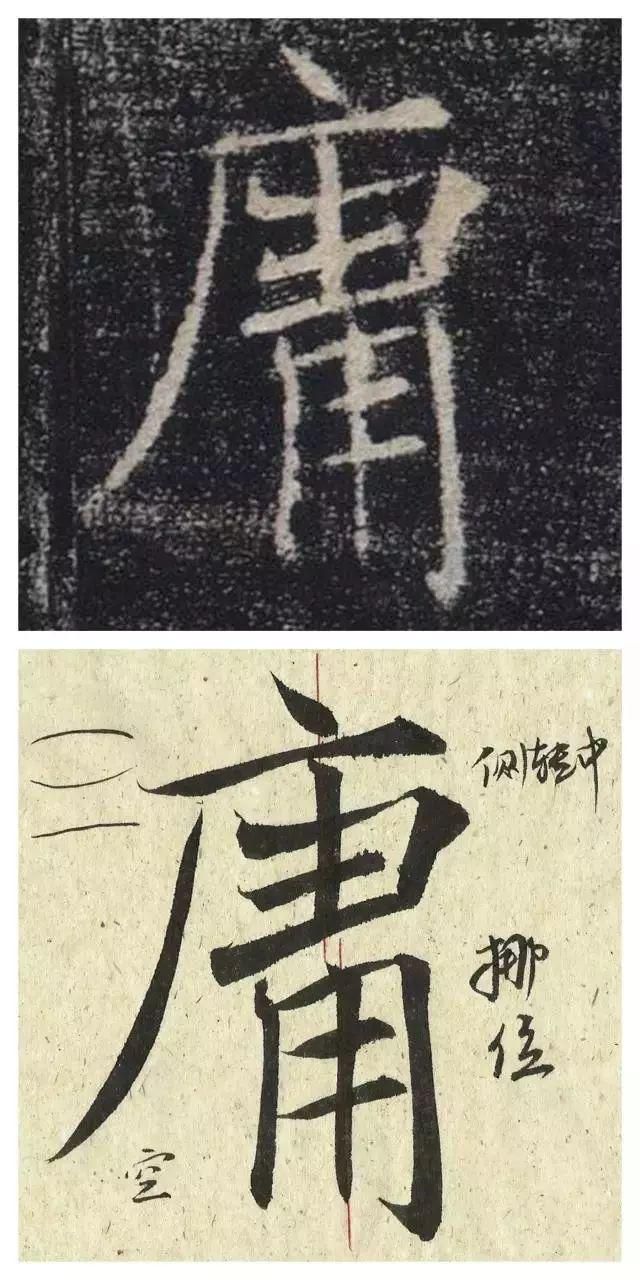 庸
庸
侧转中
挪
位
空